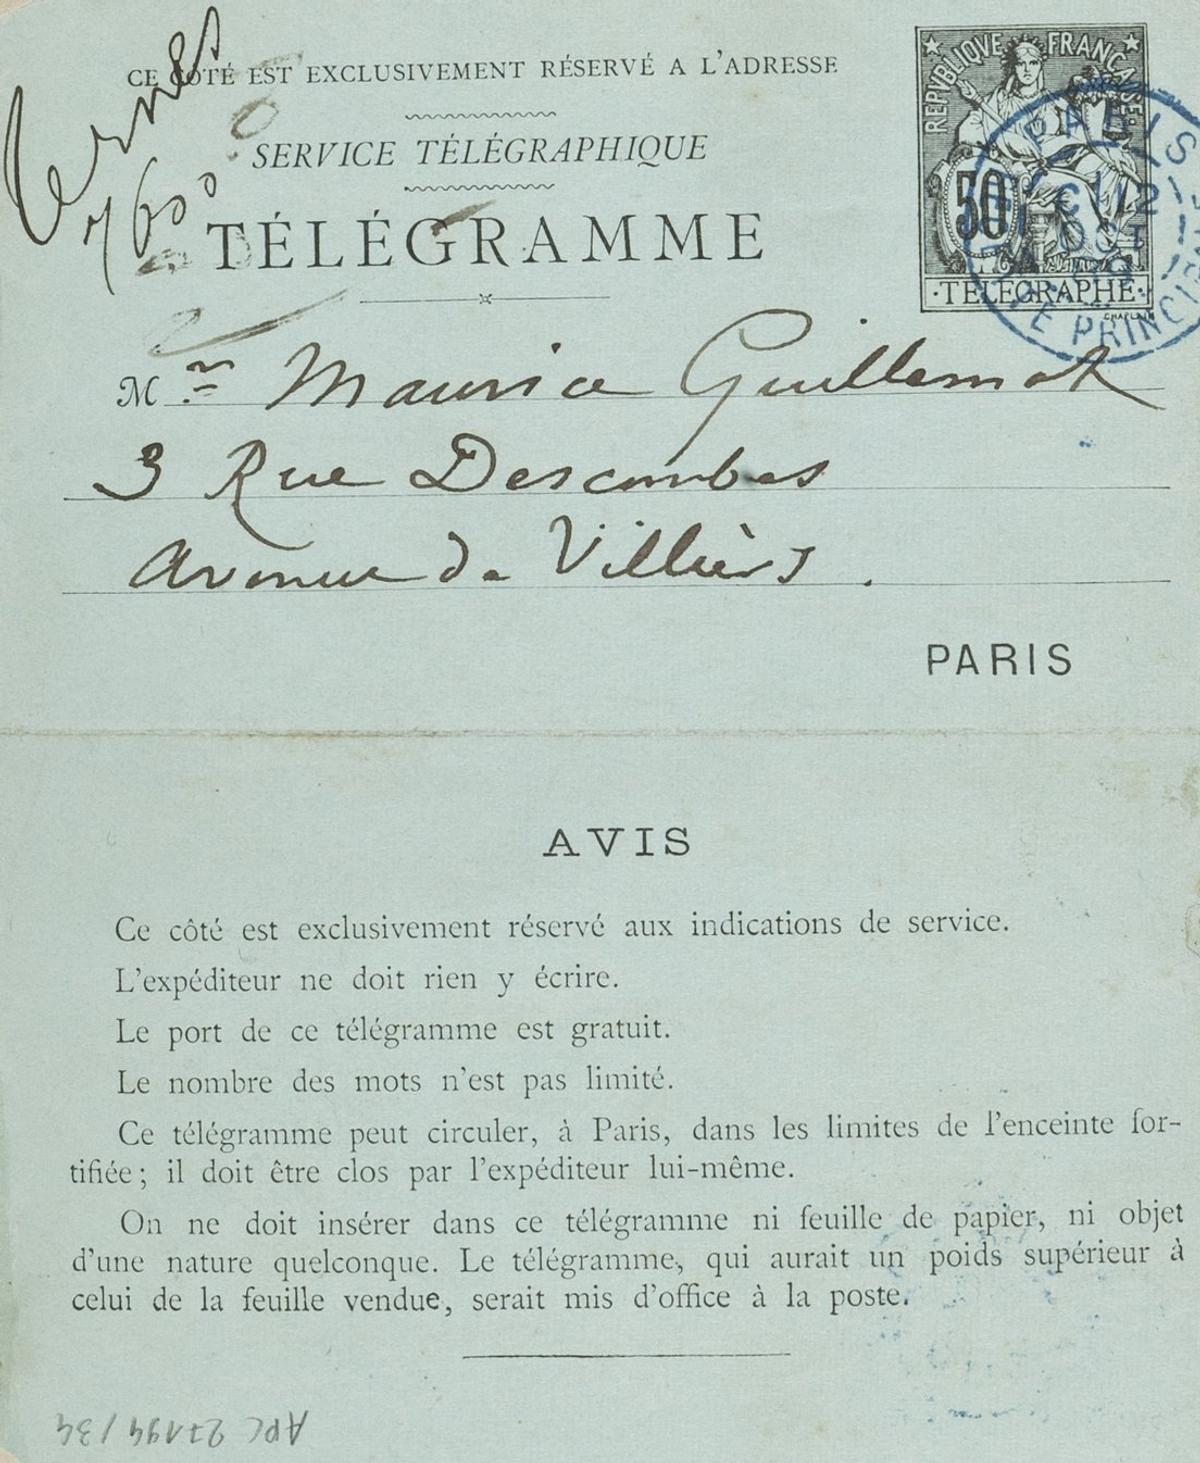 Ternes
7600
CE CÔTÉ EST EXCLUSIVEMENT RÉSERVÉ A L'ADRESSE
SERVICE TÉLÉGRAPHIQUE
TÉLÉGRAMME
REPUBLIQUE FRANÇAISE
50
TELEGRAPHE
CHAPLAIN
PARIS
OCT
PRINCI
Mr Maurice Guillemot
3 Rue Descombes
Avenue de Villiers.
PARIS
AVIS
Ce côté est exclusivement réservé aux indications de service.
L'expéditeur ne doit rien y écrire.
Le port de ce télégramme est gratuit.
Le nombre des mots n'est pas limité.
Ce télégramme peut circuler, à Paris, dans les limites de l'enceinte for-
tifiée; il doit être clos par l'expéditeur lui-même.
On ne doit insérer dans ce télégramme ni feuille de papier, ni objet
d'une nature quelconque. Le télégramme, qui aurait un poids supérieur à
celui de la feuille vendue, serait mis d'office à la poste.
APC 27194/34